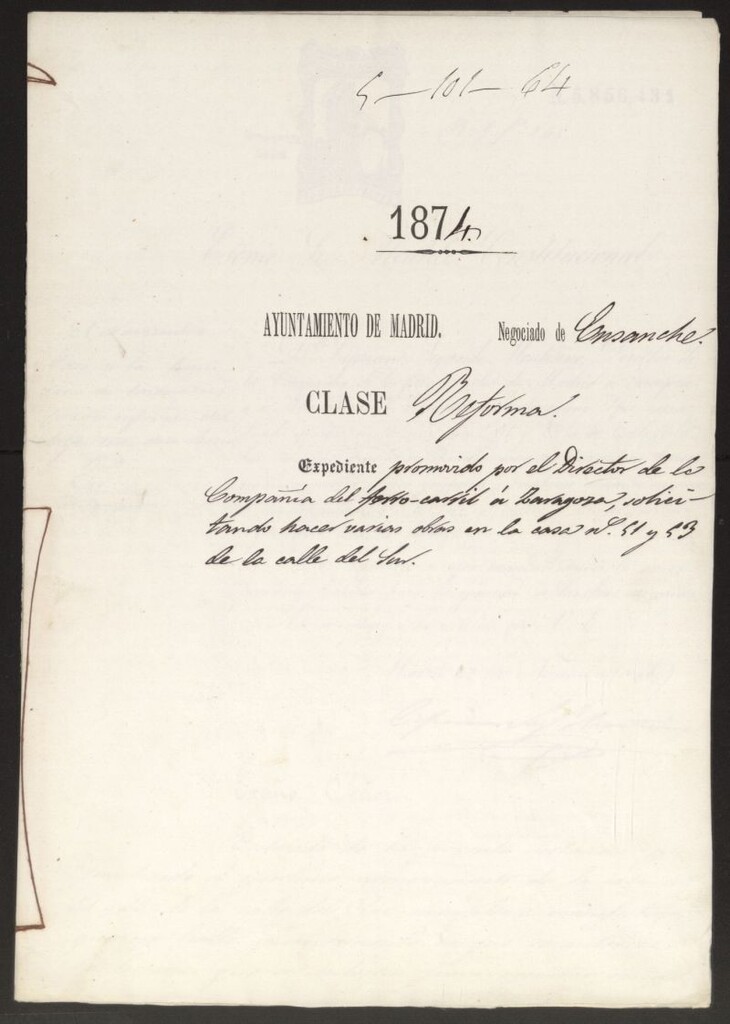 5-101-64
1874.
AYUNTAMIENTO DE MADRID. Negociado de Ensanche.
CLASE Reforma.
Expediente promovido por el Director de la
Compañia del ferro-carril á Zaragoza, solici-
tando hacer varias obras en la casa nº. 51 y 53
de la calle del Sur.